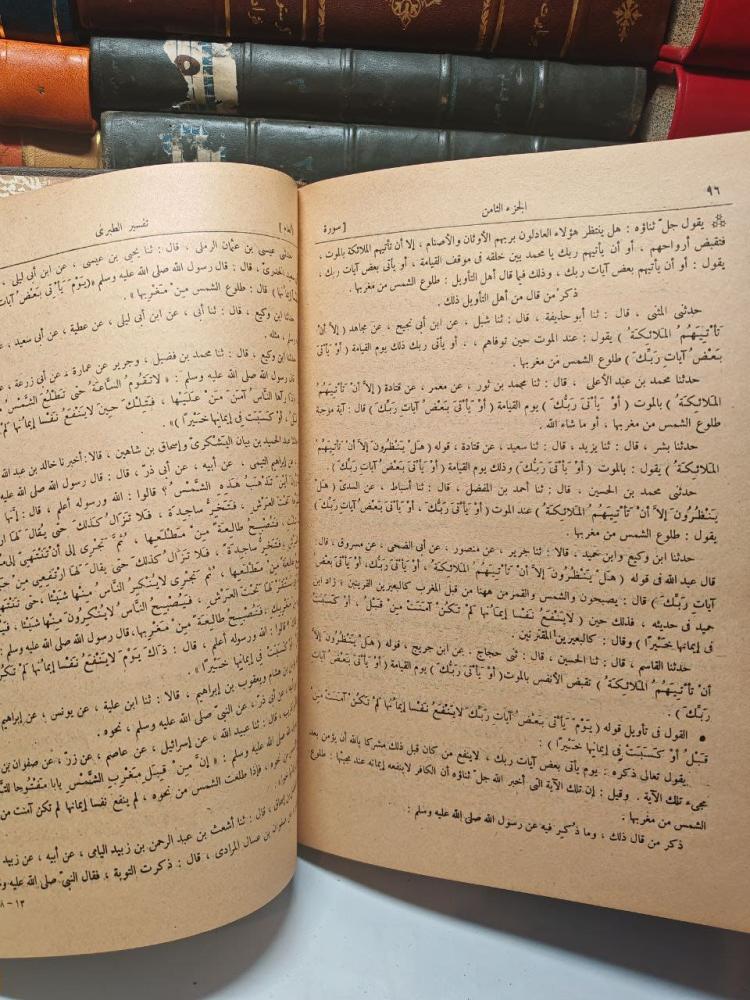 ٩٦
الجزء الثامن
[ سورة
يقول جلّ ثناؤه : هل ينتظر هؤلاء العادلون بربهم الأوثان والأصنام ، إلا أن تأتيهم الملائكة بالموت ،
فتقبض أرواحهم ، أو أن يأتيهم ربك يا محمد بين خلقه فى موقف القيامة ، أو يأتى بعض آيات ربك ،
يقول : أو أن يأتيهم بعض آيات ربك ، وذلك فيما قال أهل التأويل : طلوع الشمس من مغربها .
ذكر من قال من أهل التأويل ذلك .
حدثنى المثنى ، قال : ثنا أبو حذيفة ، قال : ثنا شبل ، عن ابن أبى نجيح ، عن مجاهد ( إلَّا أنْ
تَأْتِيَهُمُ المَلائكَةُ ) يقول : عند الموت حين توفاهم ، أو يأتى ربك ذلك يوم القيامة ( أوْ يَأتىَ
بَعْضُ آياتِ رَبِّكَ ) طلوع الشمس من مغربها .
حدثنا محمد بن عبد الأعلى ، قال : ثنا محمد بن ثور ، عن معمر ، عن قتادة ( إلَّا أنْ تَأْتيَهُمُ
المَلائكَةُ ) بالموت ( أوْ يَأْتىَ رَبُّكَ ) يوم القيامة ( أوْ يَأْتىَ بَعْضُ آياتِ رَبِّكَ ) قال : آية موجبة
طلوع الشمس من مغربها ، أو ما شاء الله .
حدثنا بشر ، قال : ثنا يزيد ، قال : ثنا سعيد ، عن قتادة ، قوله ( هَلْ يَنْظُرُونَ إلَّا أنْ تَأْتيَهُمُ
المَلائكَةُ ) يقول : بالموت ( أوْ يَأْتىَ رَبُّكَ ) وذلك يوم القيامة ( أوْ يَأْتىَ بَعْضُ آياتِ رَبِّكَ ) .
حدثنى محمد بن الحسين ، قال : ثنا أحمد بن المفضل ، قال : ثنا أسباط ، عن السدىّ ( هَلْ
يَنْظُرُونَ إلَّا أنْ تَأْتيَهُمُ المَلائكَةُ ) عند الموت ( أوْ يَأْتىَ رَبُّكَ ، أوْ يَأْتىَ بَعْضُ آياتِ رَبِّكَ )
يقول : طلوع الشمس من مغربها .
حدثنا ابن وكيع وابن حميد ، قالا : ثنا جرير ، عن منصور ، عن أبى الضحى ، عن مسروق ، قال :
قال عبد الله فى قوله ( هَلْ يَنْظُرُونَ إلَّا أنْ تَأْتيَهُمُ المَلائكَةُ ، أوْ يَأْتىَ رَبُّكَ ، أوْ يَأْتىَ بَعْضُ
آياتِ رَبِّكَ ) قال : يصبحون والشمس والقمر من ههنا من قبل المغرب كالبعيرين القرينين ، زاد ابن
حميد فى حديثه ، فذلك حين ( لايَنْفَعُ نَفْسا إيمانُها لَمْ تَكُنْ آمَنَتْ مِنْ قَبْلُ ، أوْ كَسَبَتْ
فى إيمانِها خَيْرًا ) وقال : كالبعيرين المقترنين .
حدثنا القاسم ، قال : ثنا الحسين ، قال : ثنى حجاج ، عن ابن جريج ، قوله ( هَلْ يَنْظُرُونَ إلَّا
أنْ تَأْتيَهُمُ المَلائكَةُ ) تقبض الأنفس بالموت ( أوْ يَأْتىَ رَبُّكَ ) يوم القيامة ( أوْ يَأْتىَ بَعْضُ آياتِ
رَبِّكَ ) .
● القول فى تأويل قوله ( يَوْمَ يَأْتى بَعْضُ آياتِ رَبِّكَ لايَنْفَعُ نَفْسا إيمانُها لَمْ تَكُنْ آمَنَتْ مِنْ
قَبْلُ أوْ كَسَبَتْ فى إيمانِها خَيْرًا ) :
يقول تعالى ذكره : يوم يأتى بعض آيات ربك ، لاينفع من كان قبل ذلك مشركا بالله أن يؤمن بعد
مجىء تلك الآية . وقيل : إن تلك الآية التى أخبر الله جلّ ثناؤه أن الكافر لاينفعه إيمانه عند مجيئها : طلوع
الشمس من مغربها .
ذكر من قال ذلك ، وما ذُكِر فيه عن رسول الله صلى الله عليه وسلم :
تفسير الطبرى
حدثنى عيسى بن عثمان الرملى ، قال : ثنا يحيى بن عيسى ، عن ابن أبى ليلى ،
الخدرىّ ، قال : قال رسول الله صلى الله عليه وسلم ( يَوْمَ يَأْتى بَعْضُ آياتِ
) قال : طلوع الشمس مِنْ مَغْرِبها » .
ابن وكيع ، قال : ثنا أبى ، عن ابن أبى ليلى ، عن عطية ، عن أبى سعيد ،
وسلم ، مثله .
ابن وكيع ، قال : ثنا محمد بن فضيل ، وجرير عن عمارة ، عن أبى زرعة ،
رسول الله صلى الله عليه وسلم : « لاتَقُومُ السَّاعَةُ حتى تَطْلُعَ الشَّمْسُ
رآها النَّاسُ آمَنَ مَنْ عَلَيْها ، فَتِلْكَ حينَ لايَنْفَعُ نَفْسا إيمانُها لَمْ
، أوْ كَسَبَتْ فى إيمانِها خَيْرًا » .
عبد الحميد بن بيان اليَشْكُرىّ وإسحاق بن شاهين ، قالا : أخبرنا خالد بن عبد الله
إبراهيم التيمى ، عن أبيه ، عن أبى ذرّ ، قال : قال رسول الله صلى الله عليه
أيْنَ تَذْهَبُ هَذِهِ الشَّمْسُ ؟ قالوا : الله ورسوله أعلم ، قال : إنَّها
تحْتَ العَرْشِ ، فَتَخِرُّ ساجِدَةً ، فَلا تَزَالُ كَذلكَ حتى يُقالَ لَهَا
، فَتُصْبِحُ طالِعَةً مِنْ مَطْلَعِها ، ثُمَّ تَجْرِى إلى أنْ تَنْتَهىَ
، فَتَخِرُّ ساجِدَةً ، فَلا تَزَالُ كَذلكَ حتى يُقالَ لَهَا ارْتَفِعى مِنْ
طالِعَةً مِنْ مَطْلَعِها ، ثُمَّ تَجْرِى لايُنْكِرُ النَّاسُ مِنْها شَيْئا ، حتى تَنْتَهىَ
تحتَ العَرْشِ ، فَيُصْبِحُ النَّاسُ لايُنْكِرُونَ مِنْها شَيْئا ،
فَتُصْبِحُ طالِعَةً مِنْ مَغْرِبها ، قال رسول الله صلى الله عليه وسلم :
قالوا : الله ورسوله أعلم ، قال : ذاكَ يَوْمَ لايَنْفَعُ نَفْسا إيمانُها
كَسَبَتْ فى إيمانِها خَيْرًا » .
هشام ويعقوب بن إبراهيم ، قالا : ثنا ابن علية ، عن يونس ، عن إبراهيم
عن أبى ذرّ ، عن النبىّ صلى الله عليه وسلم ، نحوه .
، قال : ثنا عبيد الله ، عن إسرائيل ، عن عاصم ، عن زرّ ، عن صفوان بن
الله عليه وسلم : « إنَّ مِنْ قِبَلِ مَغْرِبِ الشَّمْسِ بابا مَفْتُوحا
، فإذا طلعت الشمس من نحوه ، لم ينفع نفسا إيمانها لم تكن آمنت من
، قال : ثنا أشعث بن عبد الرحمن بن زبيد اليامى ، عن أبيه ، عن زبيد
صفوان بن عسال المرادى ، قال : ذكرت التوبة ، فقال النبىّ صلى الله عليه
١٣ - ٨